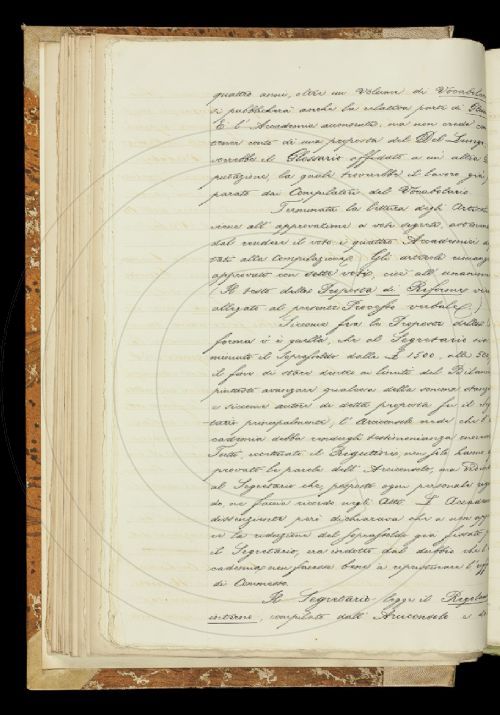 quattro anni, oltre un Volume di Vocabolar
si pubblicherà anche la relativa parte di Glos
E l' Accademia acconsente, ma non crede
tener conto di una proposta del Del Lungo
vorrebbe il Glossario affidato a un' altra
putazione, la quale troverebbe il lavoro già
parato dai Compilatori del Vocabolario.
Terminata la lettura degli Articoli
viene all' approvazione a voti segreti,
dal rendere il voto i quattro Accademici
tati alla Compilazione. Gli articoli rimango
approvati con sette voti, cioè all' unanim
(Il testo della Proposta di Riforme vien
allegato al presente Processo verbale.)
Siccome fra le Proposte della
forma v' è quella, che al Segretario sia
minuito il soprasoldo dalle £ 1500, alle
il fine di stare dentro ai limiti del Bilan
piuttosto avanzare qualcosa della somma
e siccome autore di detta proposta fu il
tario principalmente, l' Arciconsolo crede che l'
cademia debba rendergli testimonianza
Tutti, eccettuato il Rigutini, non solo hanno
provato le parole dell' Arciconsolo, ma
al Segretario che, posposto ogni personale
do, ne faccia ricordo negli Atti. L' Accadem
dissenziente però dichiarava che a non
ve la riduzione del soprasoldo già fissato
il Segretario, era indotto dal dubbio che l'
cademia non facesse bene a ripristinare l'
di Commesso.
Il Segretario legge il Regolam
interno, compilato dall' Arciconsolo e